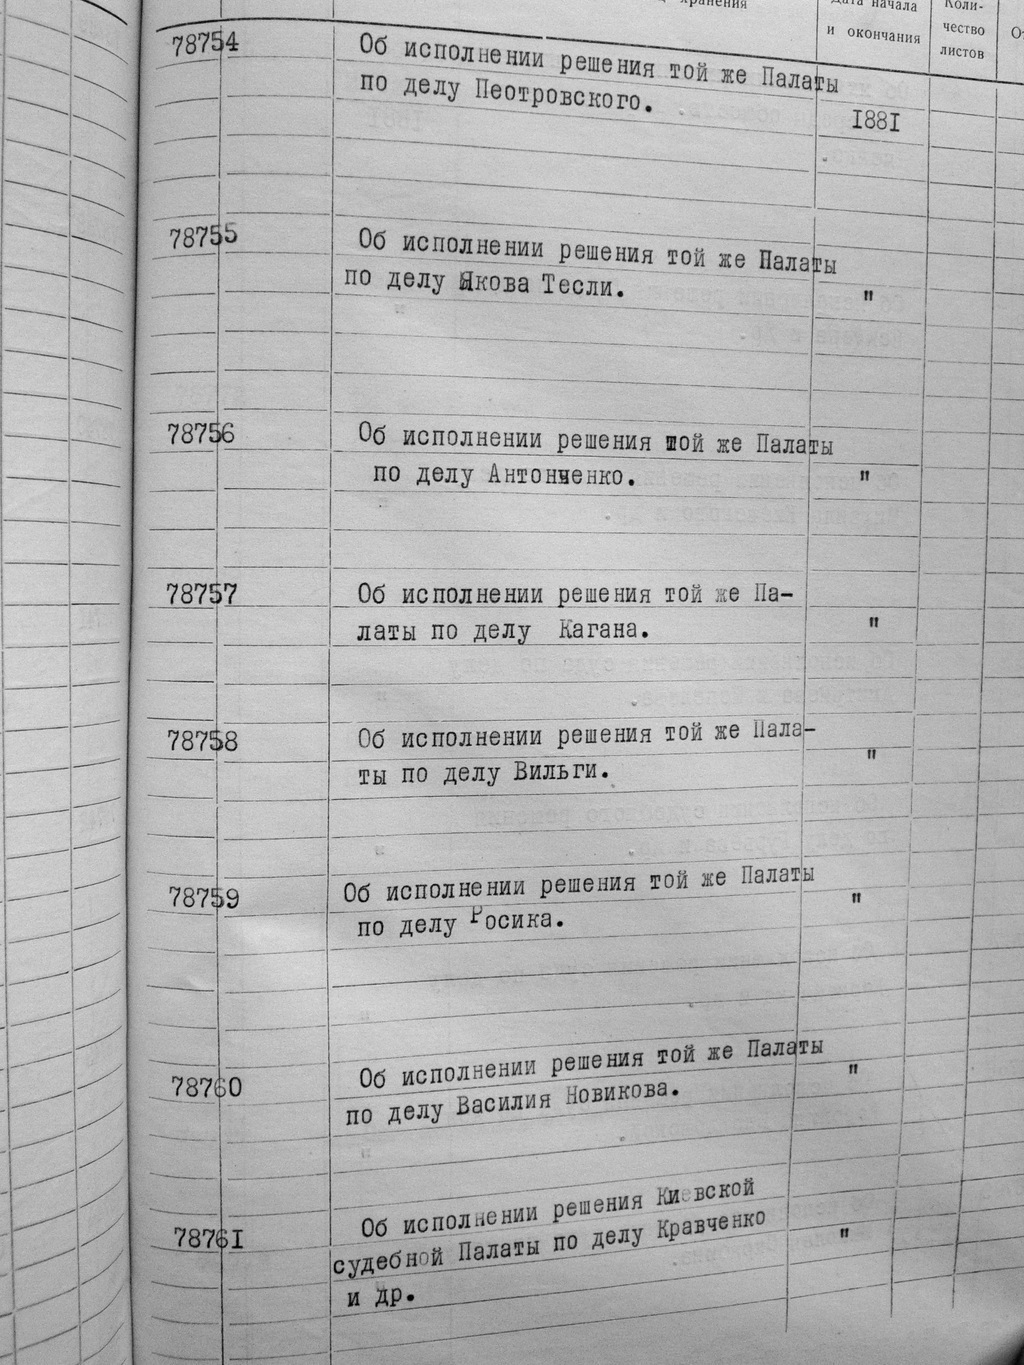 хранения
Дата начала
и окончания
Коли-
чество
листов
78754 Об исполнении решения той же Палаты
по делу Пеотровского.
I88I
78755 Об исполнении решения той же Палаты
по делу Якова Тесли. "
78756 Об исполнении решения той же Палаты
по делу Антонченко. "
78757 Об исполнении решения той же Па-
латы по делу Кагана. "
78758 Об исполнении решения той же Пала-
ты по делу Вильги. "
78759 Об исполнении решения той же Палаты
по делу Росика. "
78760 Об исполнении решения той же Палаты
по делу Василия Новикова. "
7876I Об исполнении решения Киевской
судебной Палаты по делу Кравченко "
и др.